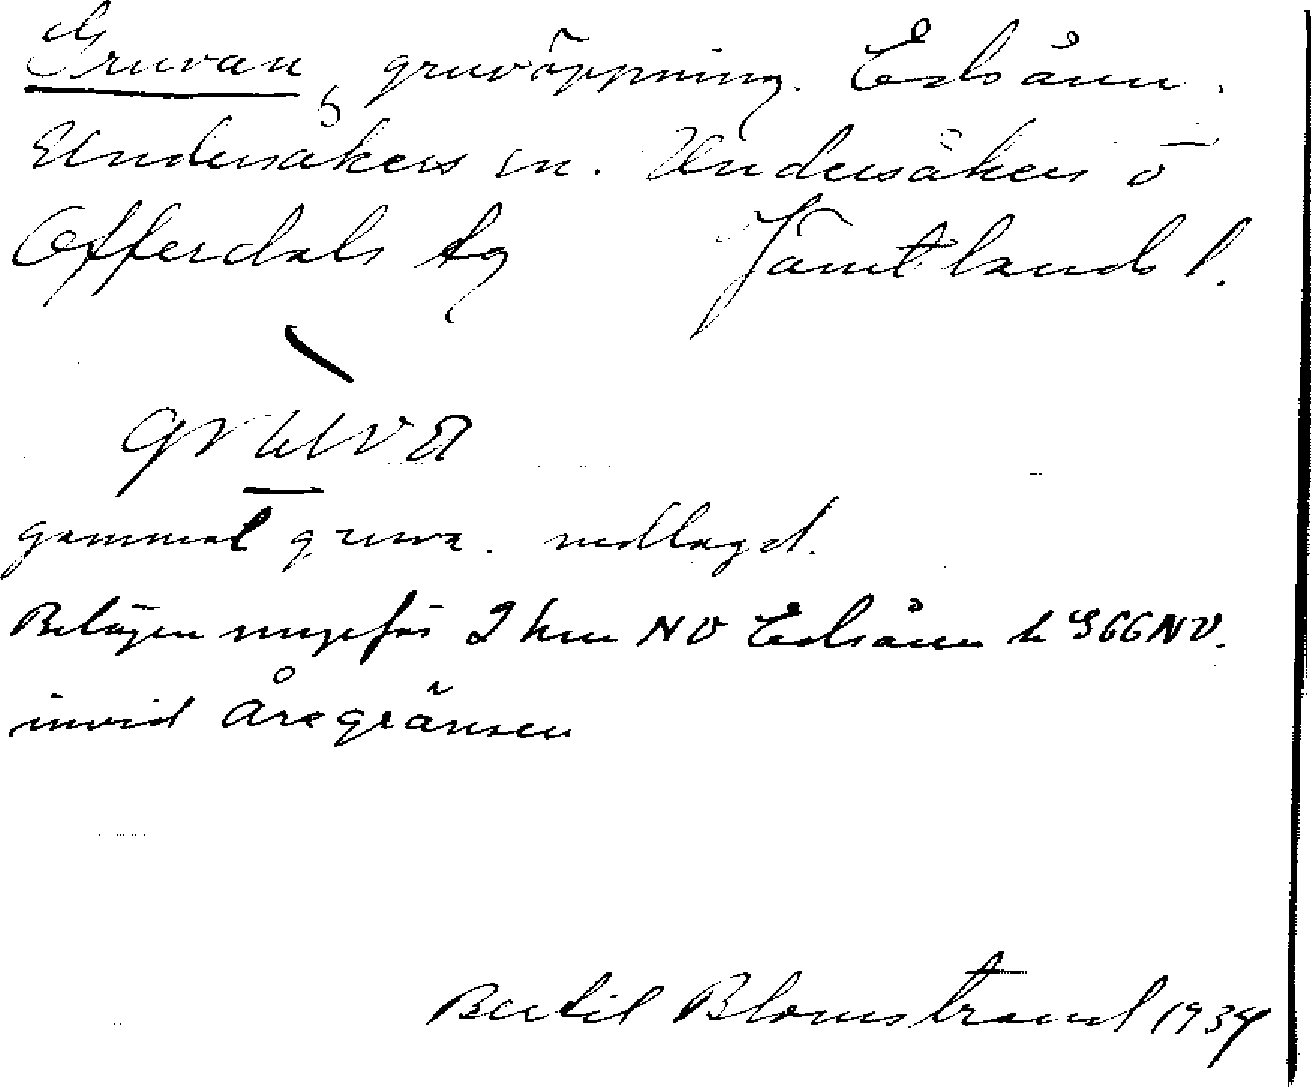 Gruvan, gruvöppning. Edsånn.
Undersåkers sn. Undersåkers o
Offerdals tg Jämtlands l.
gruva
gammal gruva. nedlagd.
Belägen ungefär 2 km NV Edsånn k 366NV.
invid Åregränsen
Bertil Blomstrand 1934